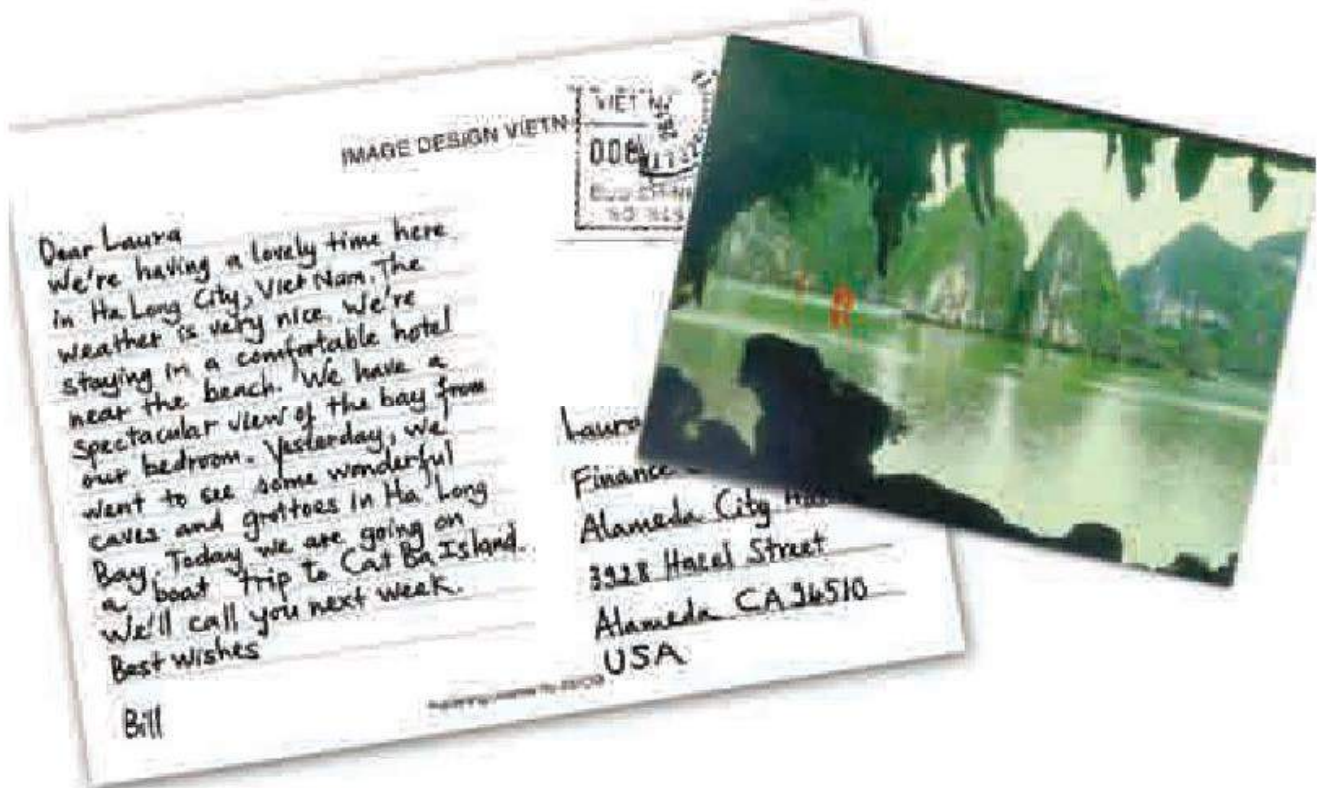 IMAGE DESIGN VIETN
VIET N
Dear Laura
We're having a lovely time here
in Ha Long City, Viet Nam. The
weather is very nice. We're
staying in a comfortable hotel
near the beach. We have a
spectacular view of the bay from
our bedroom. Yesterday, we
went to see some wonderful
caves and grottoes in Ha Long
Bay. Today we are going on
a boat trip to Cat Ba Island.
We'll call you next week.
Best Wishes
Bill
Laura
Finance
Alameda City
3928 Hazel Street
Alameda CA 94510
USA